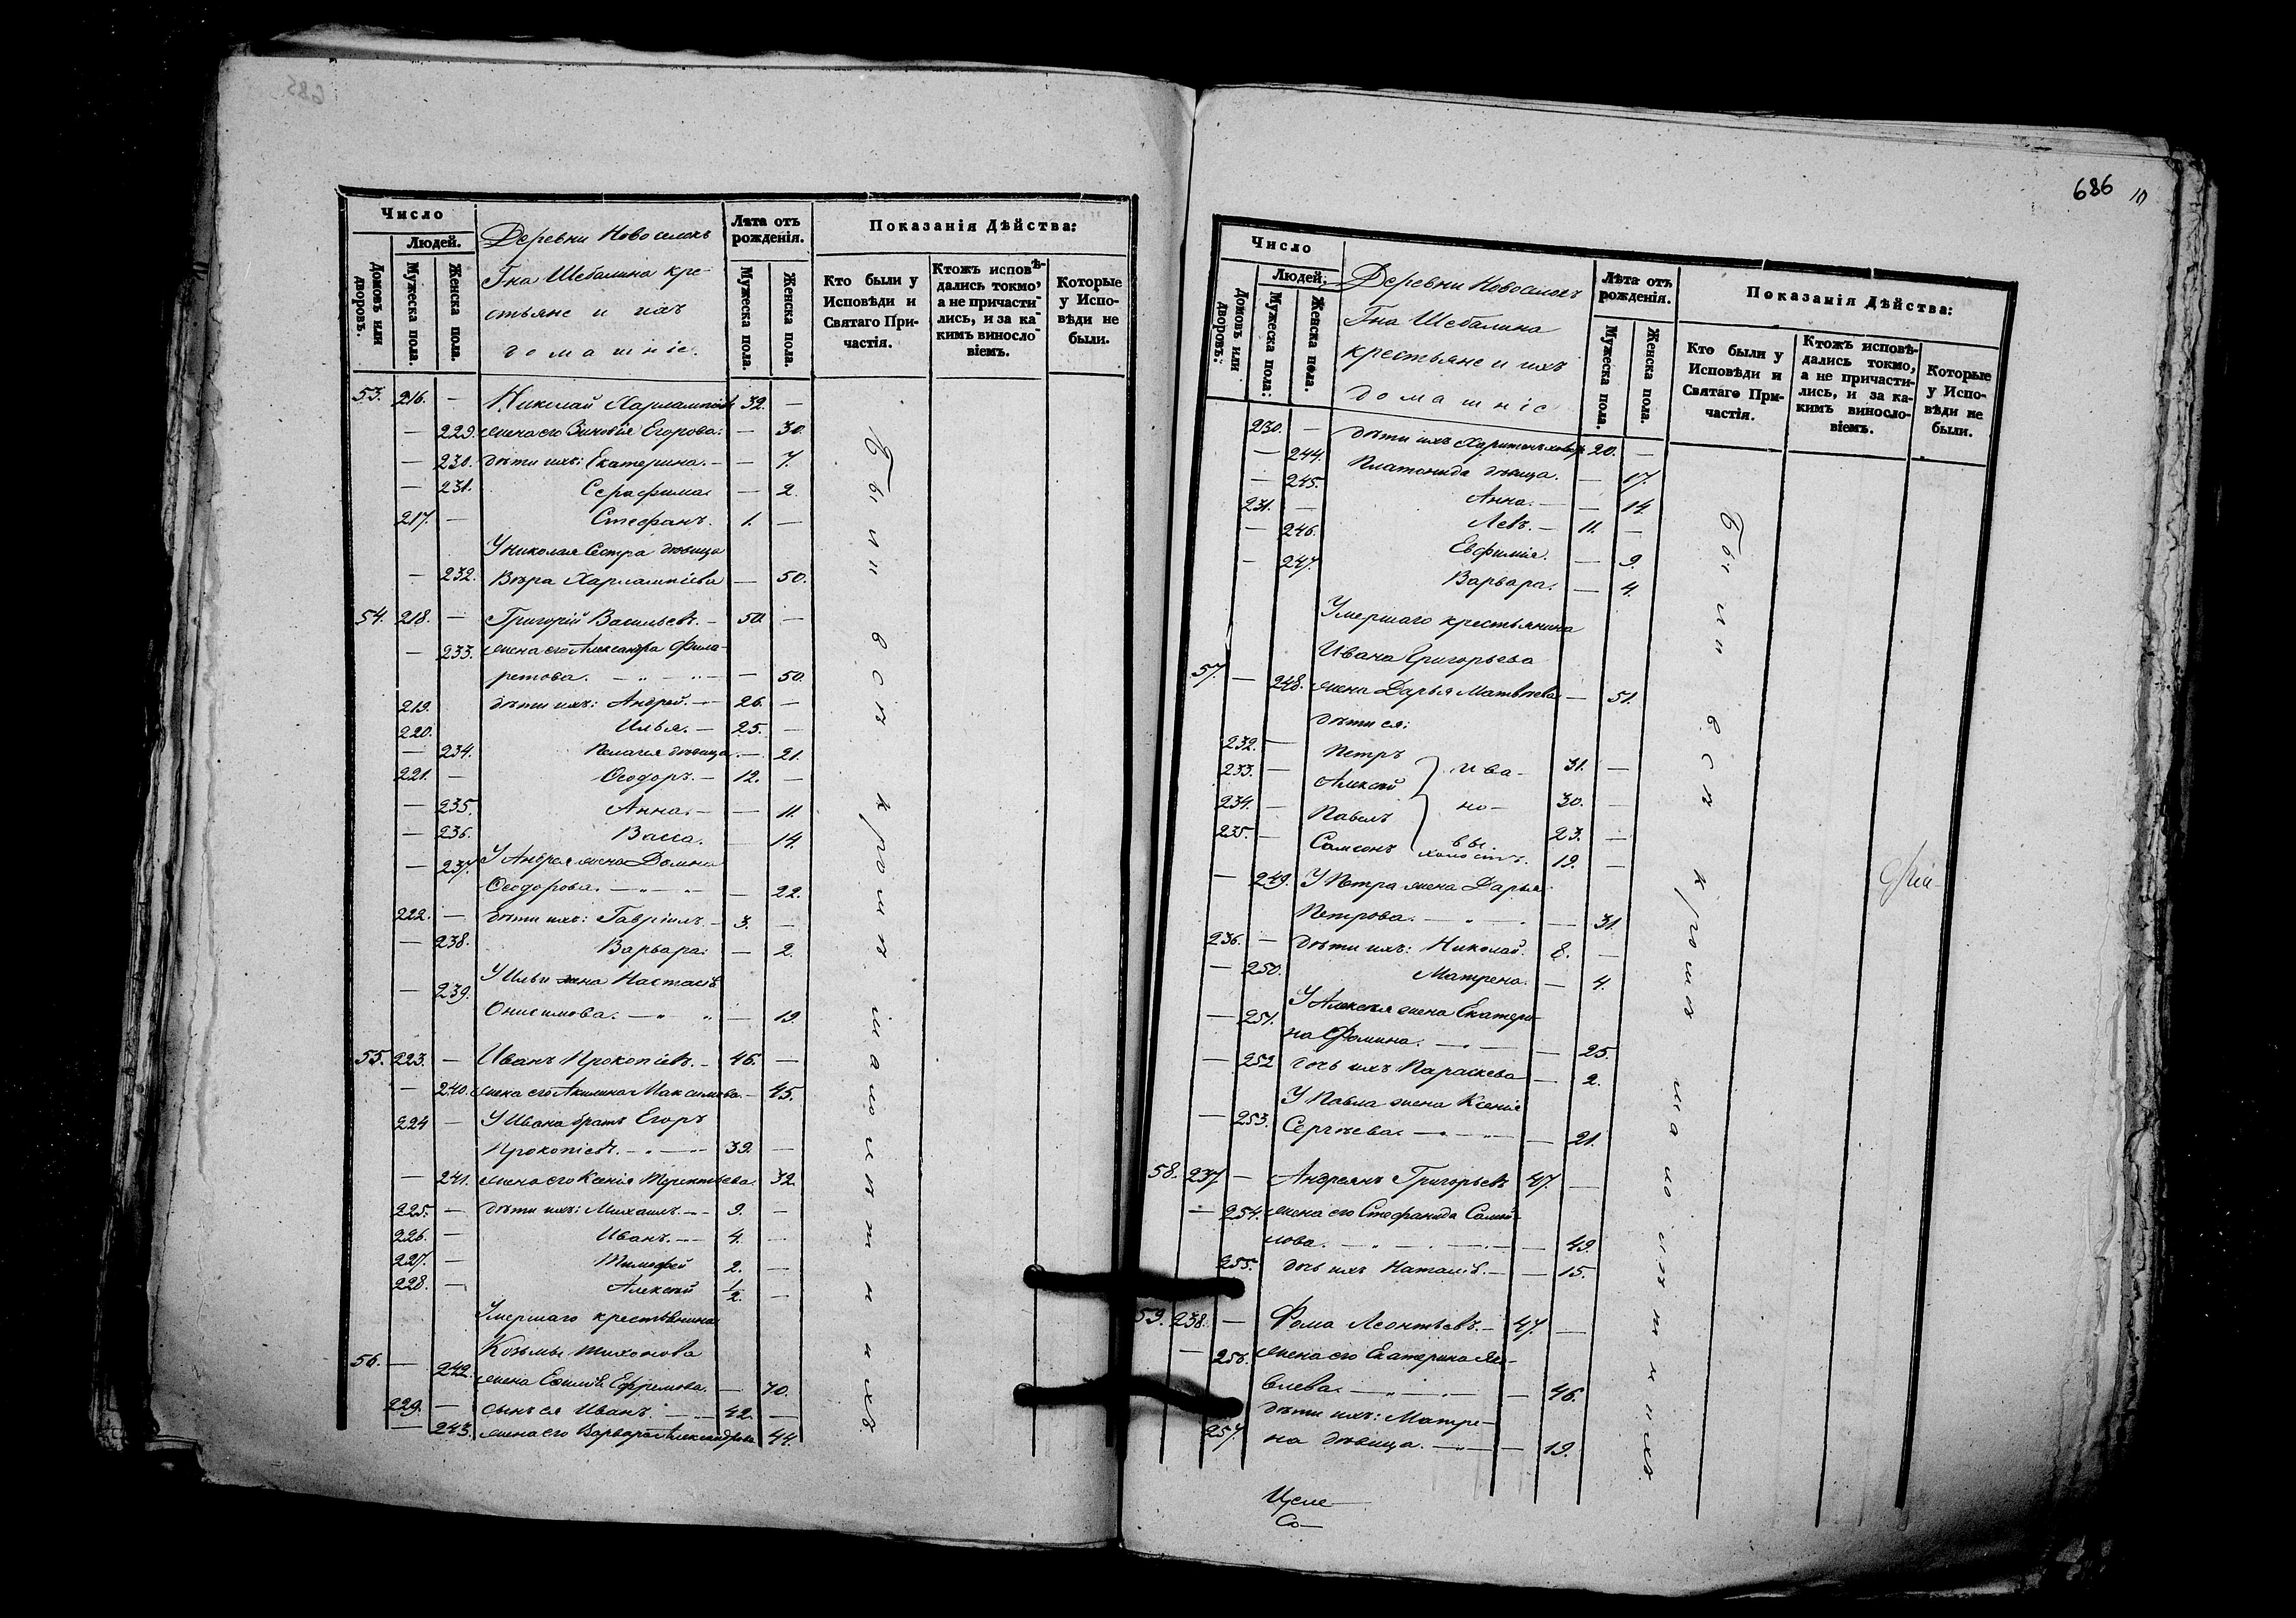 685
Число
Людей.
Домовъ или дворовъ.
Мужеска пола.
Женска пола.
Деревни Новоселокъ
Гна Шебалина кре-
стьяне и ихъ
домашніе.
Лѣта отъ рожденія.
Мужеска пола.
Женска пола.
Показанія Дѣйства:
Кто были у Исповѣди и Святаго При-частія.
Ктожъ исповѣ-дались токмо, а не причасти-лись, и за ка-кимъ винослo-віемъ.
Которые у Испо-вѣди не были.
53. 216. — Николай Харлампіевъ 32. —
— 229. жена его Зиновія Егорова: — 30.
— 230. дѣти ихъ: Екатерина. — — 7.
— 231. Серафима — 2.
217. — Стефанъ. 1. —
У Николая Сестра дѣвица
— 232. Вѣра Харлампіева — 50.
54. 218. — Григорій Васильевъ. — 50. —
— 233. жена его Александра Фила-
ретова. — — 50.
219. дѣти ихъ: Андрей. — 26. —
220. Илья. — 25. —
— 234. Пелагея дѣвица. — 21.
221. — Ѳеодоръ. — 12. —
— 235. Анна. — — 11.
— 236. Васса. — 14.
— 237. У Андрея жена Домна
Ѳеодорова. — — 22.
222. — дѣти ихъ: Гавріилъ. — 3. —
— 238. Варвара: — 2.
У Ильи жена Настасія
— 239. Онисимова. — — 19.
55. 223. — Иванъ Прокопіевъ. — 46. —
— 240. жена его Акилина Максимова. — 45.
224 — У Ивана братъ Егоръ
Прокопіевъ. — 39. —
— 241. жена его Ксенія Терентьева. 32.
225. — дѣти ихъ: Михаилъ. — 9. —
226. — Иванъ. — 4. —
227. — Тимофей 2. —
228. — Алексѣй 1/2. —
Умершаго крестьянина
Козьмы Тихонова
56. — 242. жена Ефремова. — 70.
229. — сынъ ея Иванъ. — 42. —
— 243. жена его Варвара Александрова 44.
Были вси кромѣ малолѣтнихъ
686
10
Число
Людей.
Домовъ или дворовъ:
Мужеска пола:
Женска пола.
Деревни Новоселокъ
Гна Шебалина
крестьяне и ихъ
домашніе
Лѣта отъ рожденія.
Мужеска пола.
Женска пола.
Показанія Дѣйства:
Кто были у Исповѣди и Святаго При-частія.
Ктожъ исповѣ-дались токмо, а не причасти-лись, и за ка-кимъ винослo-віемъ.
Которые у Испо-вѣди не были.
230. — дѣти ихъ Харитонъ 20. —
— 244. Платонида дѣвица. — 17.
— 245. Анна. — — 14.
231. — Левъ. — 11. —
— 246. Евфимія. — 9.
— 247. Варвара. — 4.
Умершаго крестьянина
Ивана Григорьева
57. — 248. жена Дарья Матвѣева — 51.
дѣти ея:
232. — Петръ 31. —
233. — Алексѣй 30. —
234. — Павелъ 23. —
235. — Самсонъ холостъ. 19. —
Ива-
но-
вы.
— 249. У Петра жена Дарья
Петрова. — — 31.
236. — дѣти ихъ: Николай. 8. —
— 250. Матрена. — 4.
У Алексѣя жена Екатери-
— 251. на Фомина. — — 25.
— 252 дочь ихъ Параскева — 2.
У Павла жена Ксенія
— 253. Сергѣева. — — 21.
58. 237. — Андреянъ Григорьевъ 47. —
— 254. жена его Стефанида Самой-
лова. — — 49.
255. дочь ихъ Наталія. — — 15.
59. 238. — Фома Леонтьевъ. — 47. —
— 256. жена его Екатерина Яко-
влева. — — 46.
дѣти ихъ: Матре-
257. на дѣвица. — — 19.
Были вси кромѣ малолѣтнихъ.